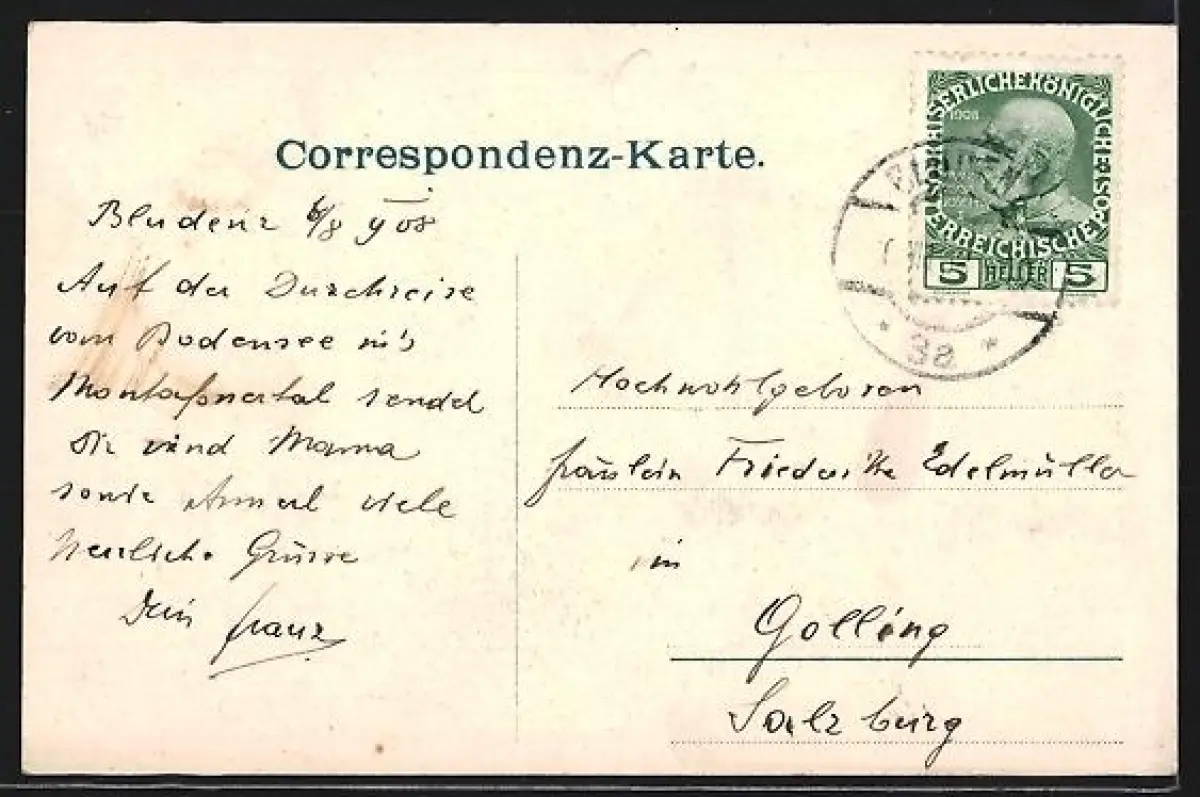 Correspondenz-Karte.
Bludenz 6/8 908
Auf der Durchreise
vom Bodensee in's
Montafonertal sendet
Dir und Mama
sowie viele
herzliche Grüsse
Dein Franz
KAISERLICHEKÖNIGLICHE ÖSTERREICHISCHE POST
1908
5 HELLER 5
BLUDENZ
* 3a *
Hochwohlgeboren
Fräulein Friederike Edelmüller
in
Golling
Salzburg